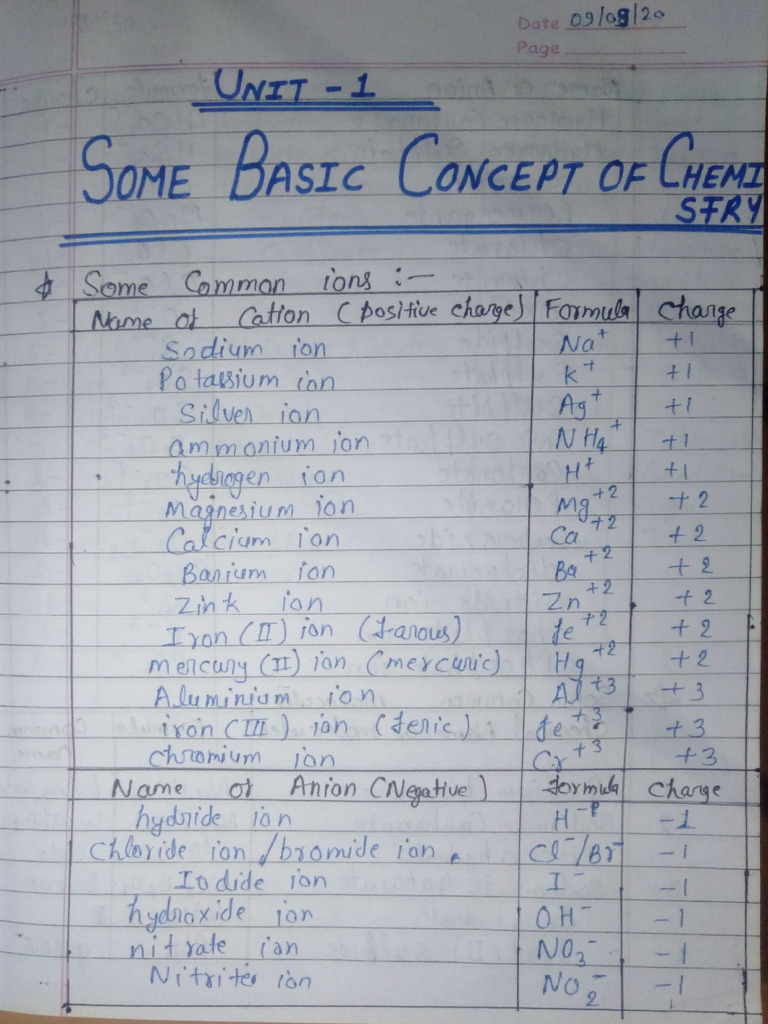 Date 09/09/20
Page
UNIT - 1
SOME BASIC CONCEPT OF CHEMI
STRY
Some Common ions :-
Name of Cation (positive charge) Formula Charge
Sodium ion Na⁺ +1
Potassium ion K⁺ +1
Silver ion Ag⁺ +1
ammonium ion NH₄⁺ +1
hydrogen ion H⁺ +1
Magnesium ion Mg⁺² +2
Calcium ion Ca⁺² +2
Barium ion Ba⁺² +2
Zink ion Zn⁺² +2
Iron (II) ion (Farous) Fe⁺² +2
mercury (II) ion (mercuric) Hg⁺² +2
Aluminium ion Al⁺³ +3
iron (III) ion (feric) Fe⁺³ +3
chromium ion Cr⁺³ +3
Name of Anion (Negative) Formula Charge
hydride ion H⁻ -1
Chloride ion / bromide ion. Cl⁻/Br⁻ -1
Iodide ion I⁻ -1
hydroxide ion OH⁻ -1
nitrate ion NO₃⁻ -1
Nitrite ion NO₂⁻ -1